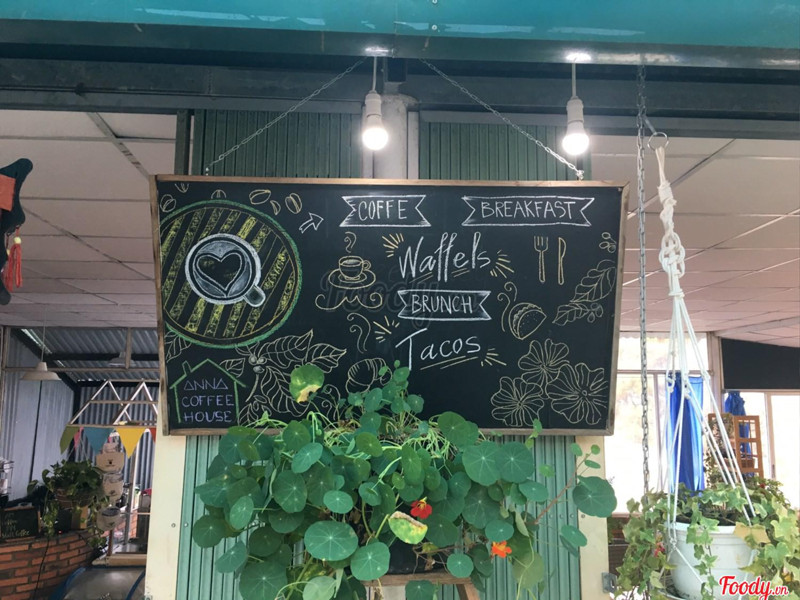 COFFE
BREAKFAST
Waffels
BRUNCH
Tacos
ANNA
COFFEE
HOUSE
Foody.vn